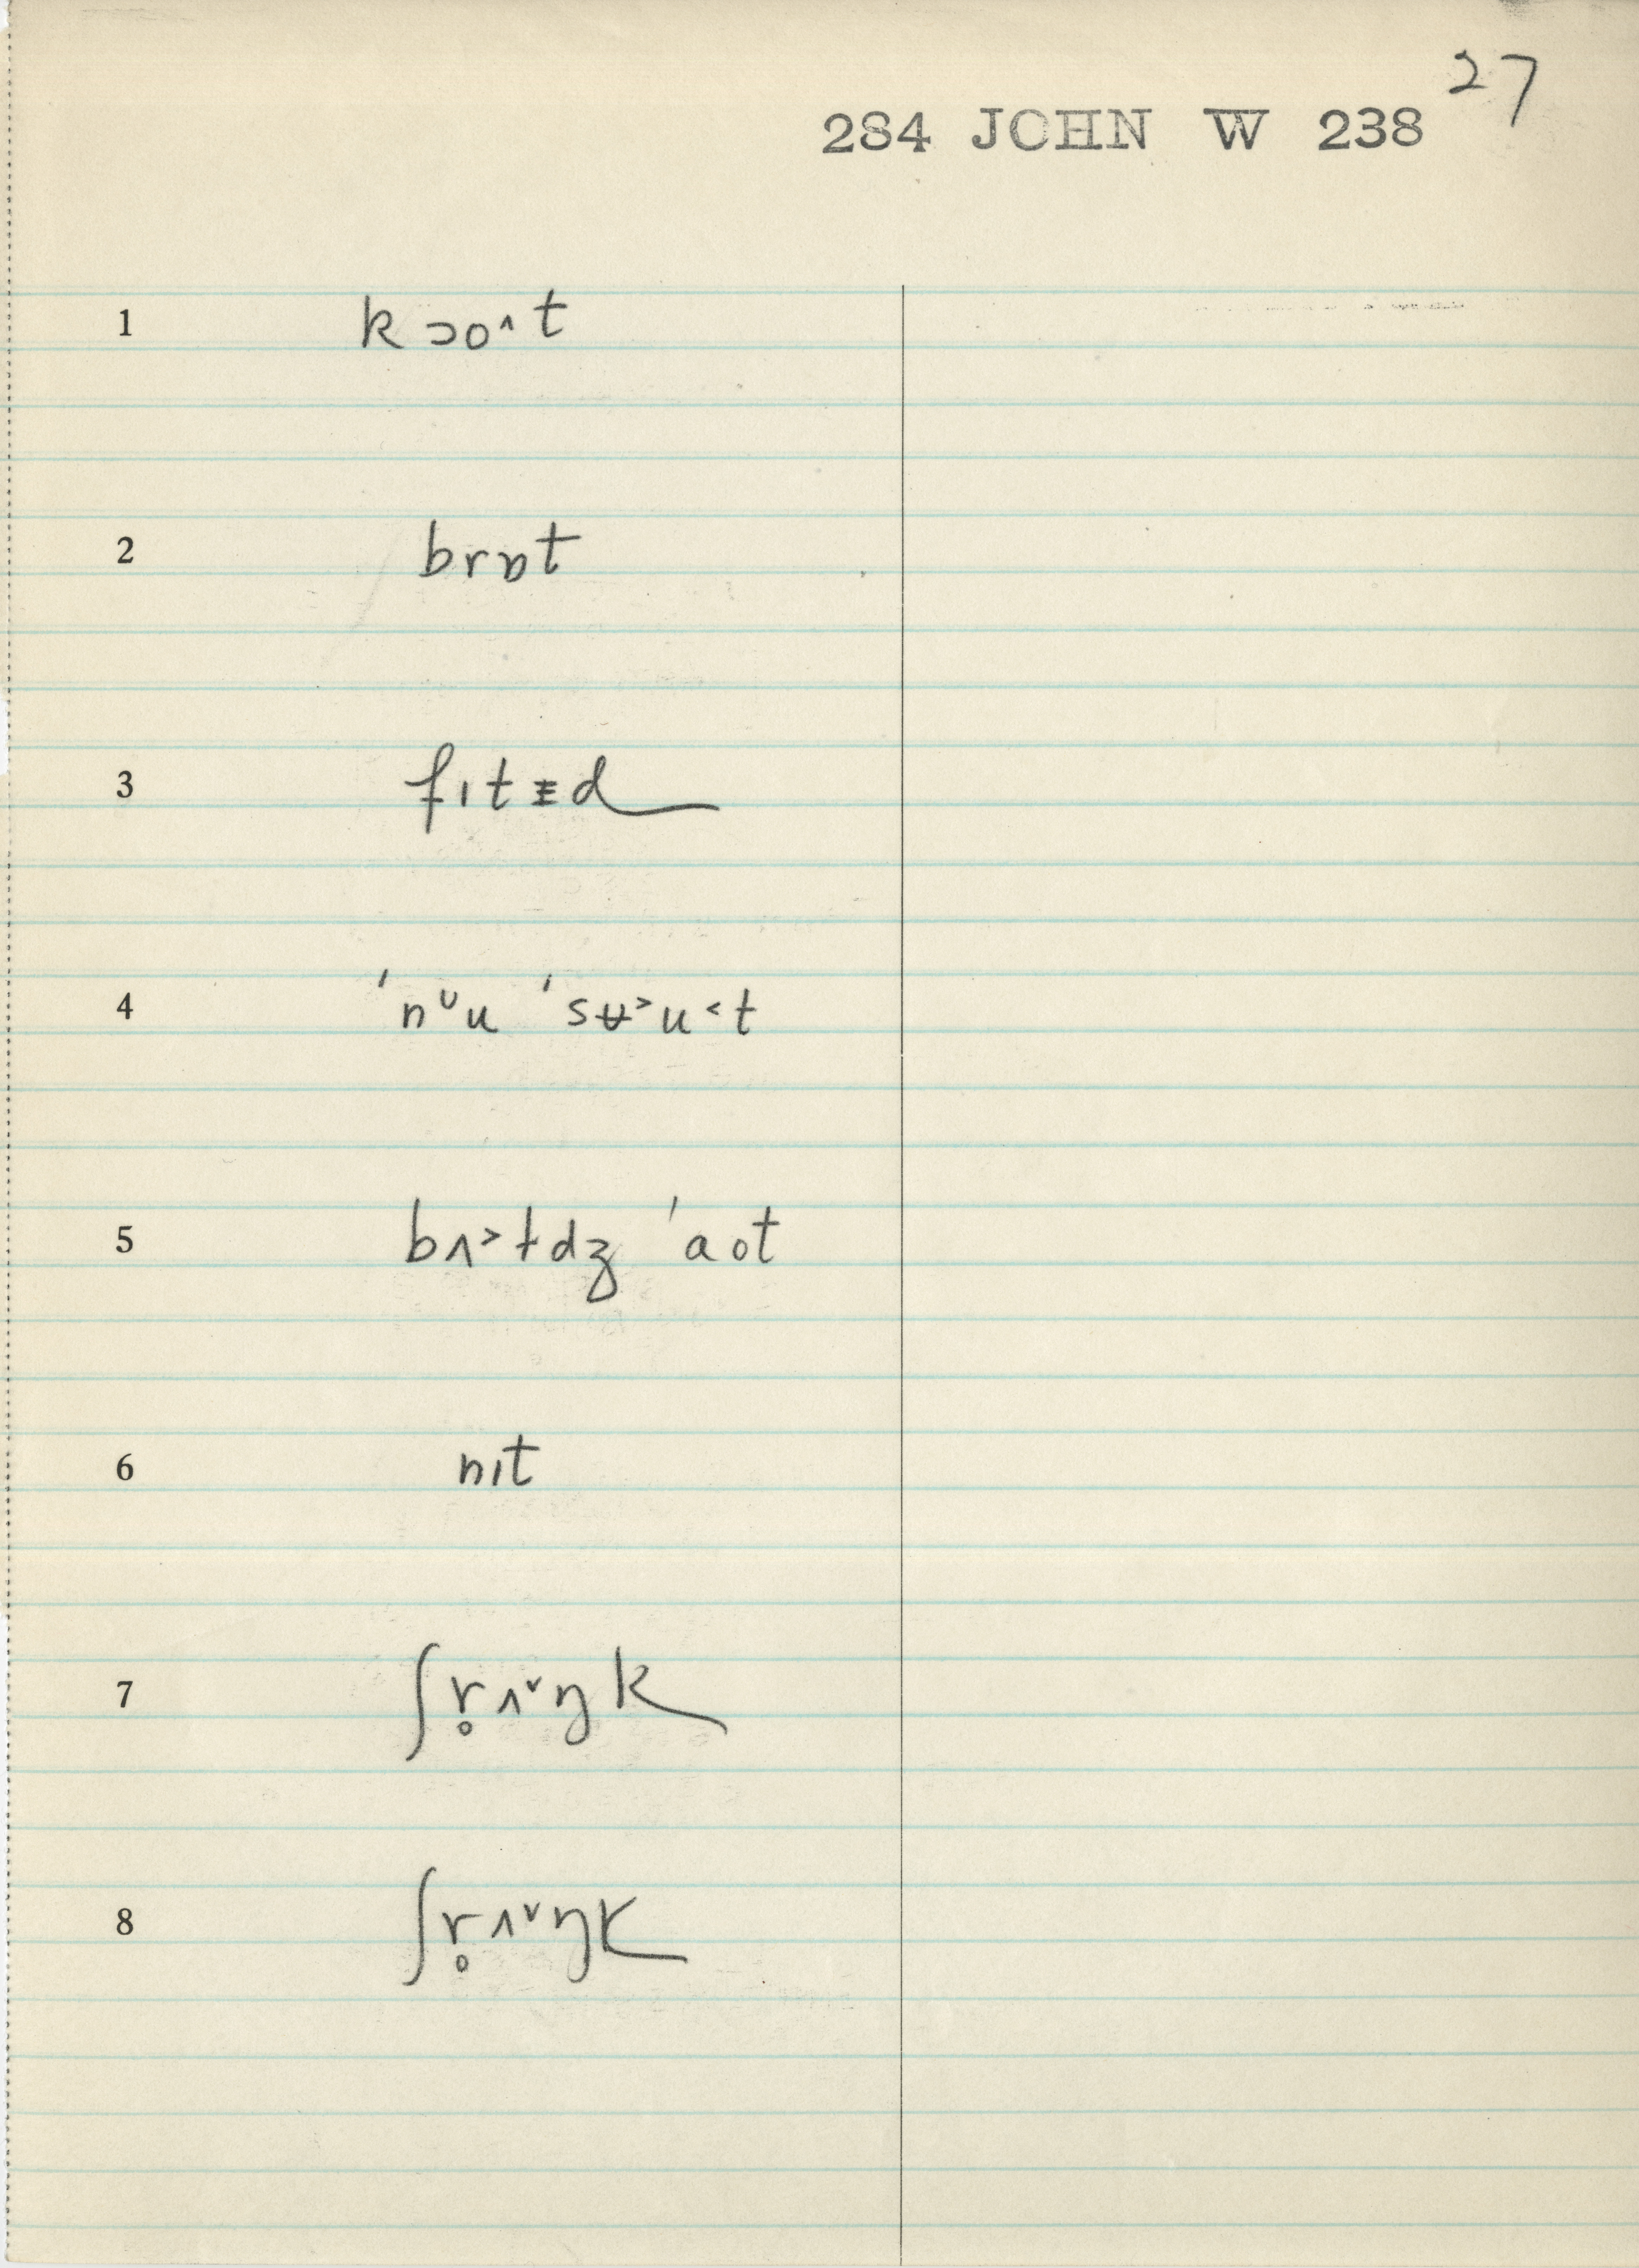 27
284 JOHN W 238
1 kɔo˄t
2 brɒt
3 fɪtᵻd
4 ˈnᶸu ˈsʉ˃u˂t
5 bʌ˃ɫdʒ ˈaot
6 nɪt
7 ʃr̥ʌ˅ŋk
8 ʃr̥ʌ˅ŋk